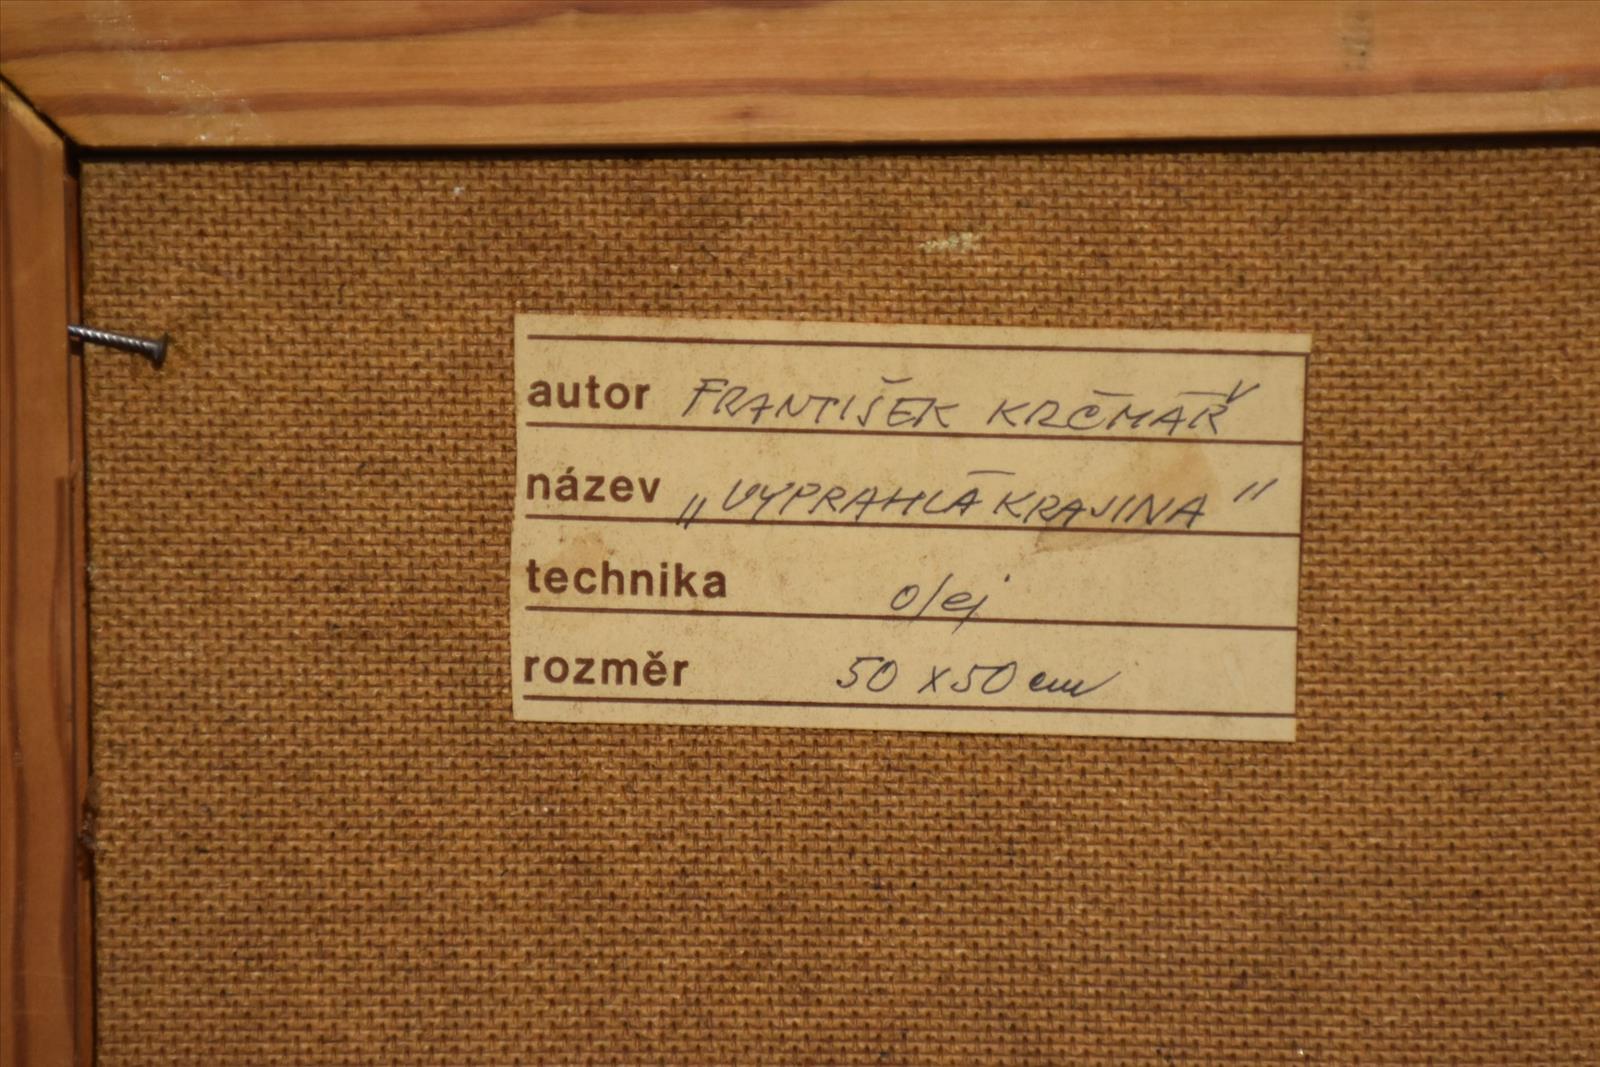 autor FRANTIŠEK KRČMÁŘ
název „VYPRAHLÁ KRAJINA"
technika olej
rozměr 50 x 50 cm